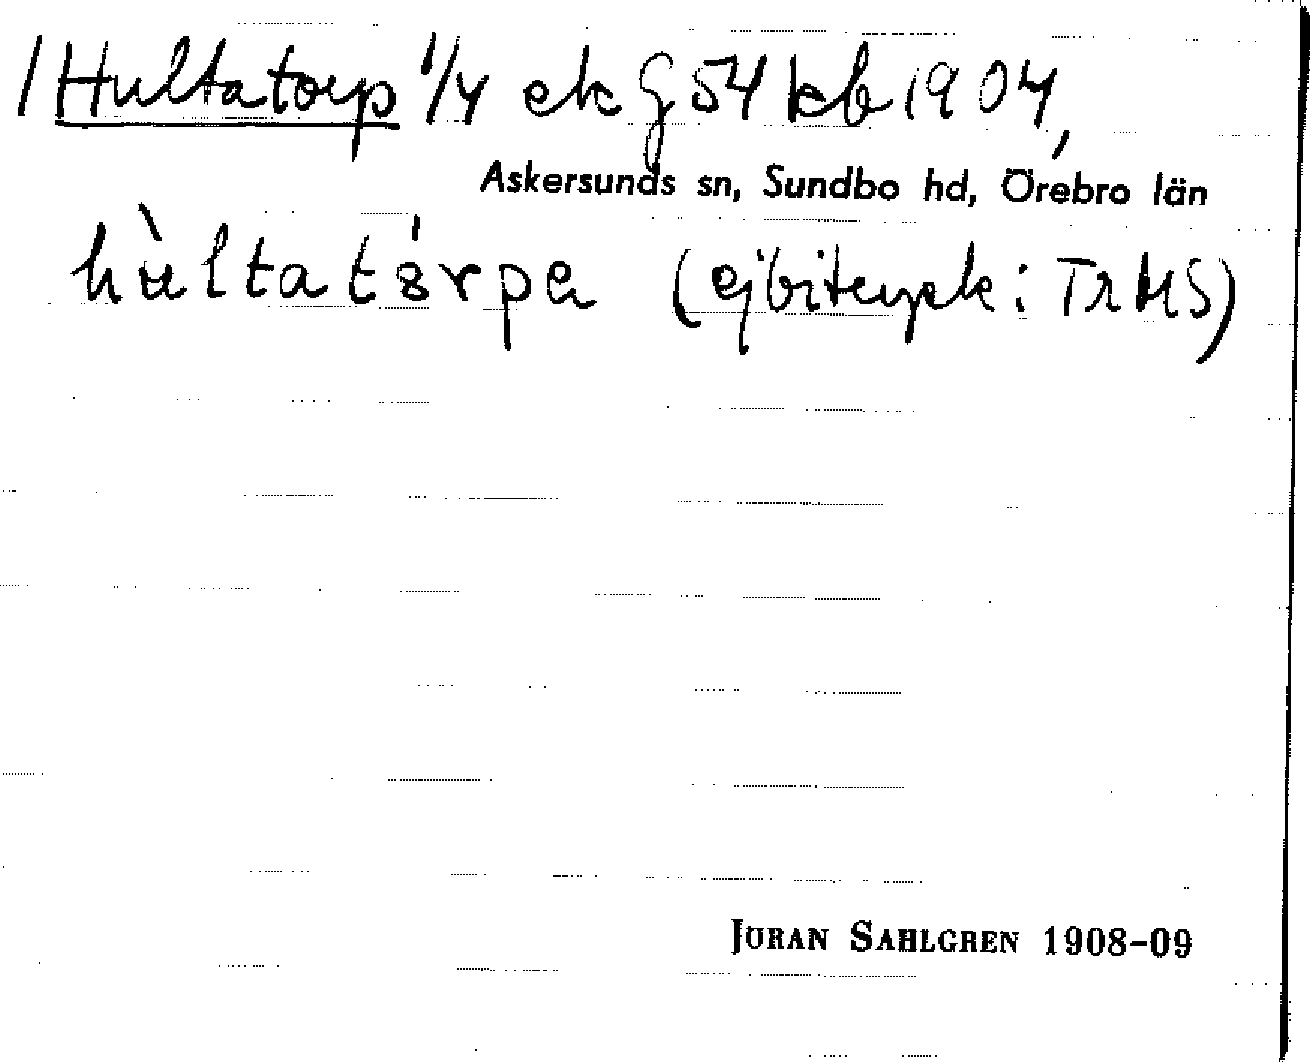 / Hultatorp 1/4 ek G 54 kb 1904,
Askersunds sn, Sundbo hd, Örebro län
hùltatórpa (ej bitryck: Tr MS)
JÖRAN SAHLGREN 1908-09